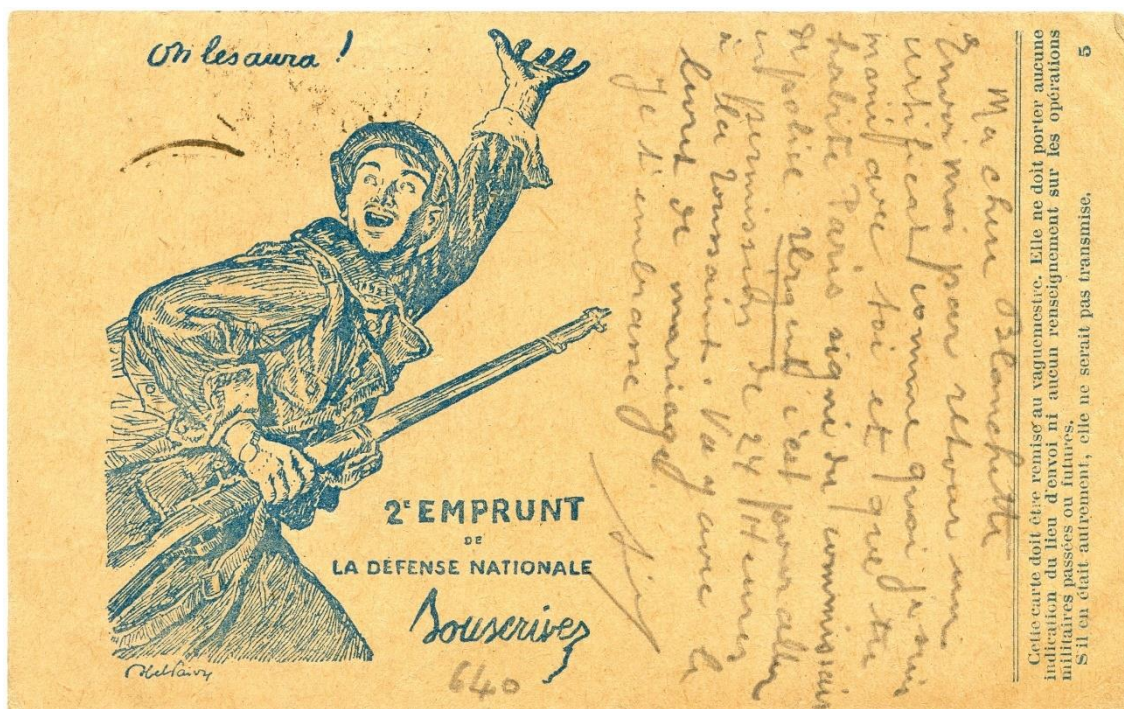 On les aura !
2e EMPRUNT
DE
LA DÉFENSE NATIONALE
Souscrivez
Abel Faivre
640
Ma chère Blanchette
Envoi moi par retour un
certificat comme quoi je suis
marié avec toi et que tu
habite Paris signé du commissaire
de police urgent c'est pour aller
en permission de 24 Heures
à la Toussaint. Va y avec le
livret de mariage.
Je t'embrasse
Cette carte doit être remise au vaguemestre. Elle ne doit porter aucune
indication du lieu d'envoi ni aucun renseignement sur les opérations
militaires passées ou futures.
S'il en était autrement, elle ne serait pas transmise.
5